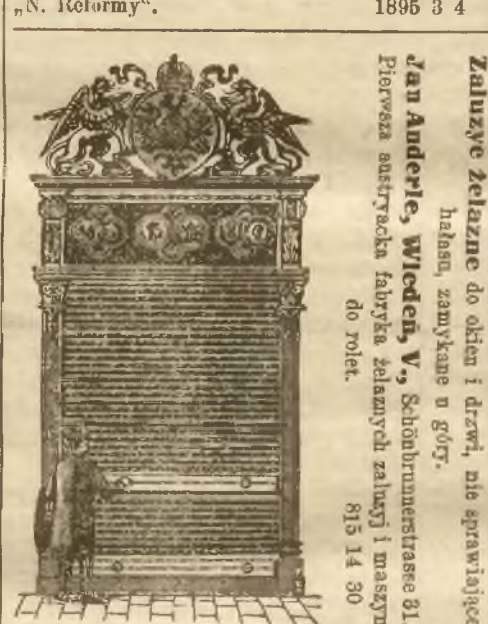 „N. Reformy“. 1895 3 4
Żaluzye żelazne do okien i drzwi, nie sprawiające
hałasu, zamykane u góry.
Jan Anderle, Wiedeń, V., Schönbrunnerstrasse 31
Pierwsza austryacka fabryka żelaznych żaluzyj i maszyn
do rolet. 815 14 30